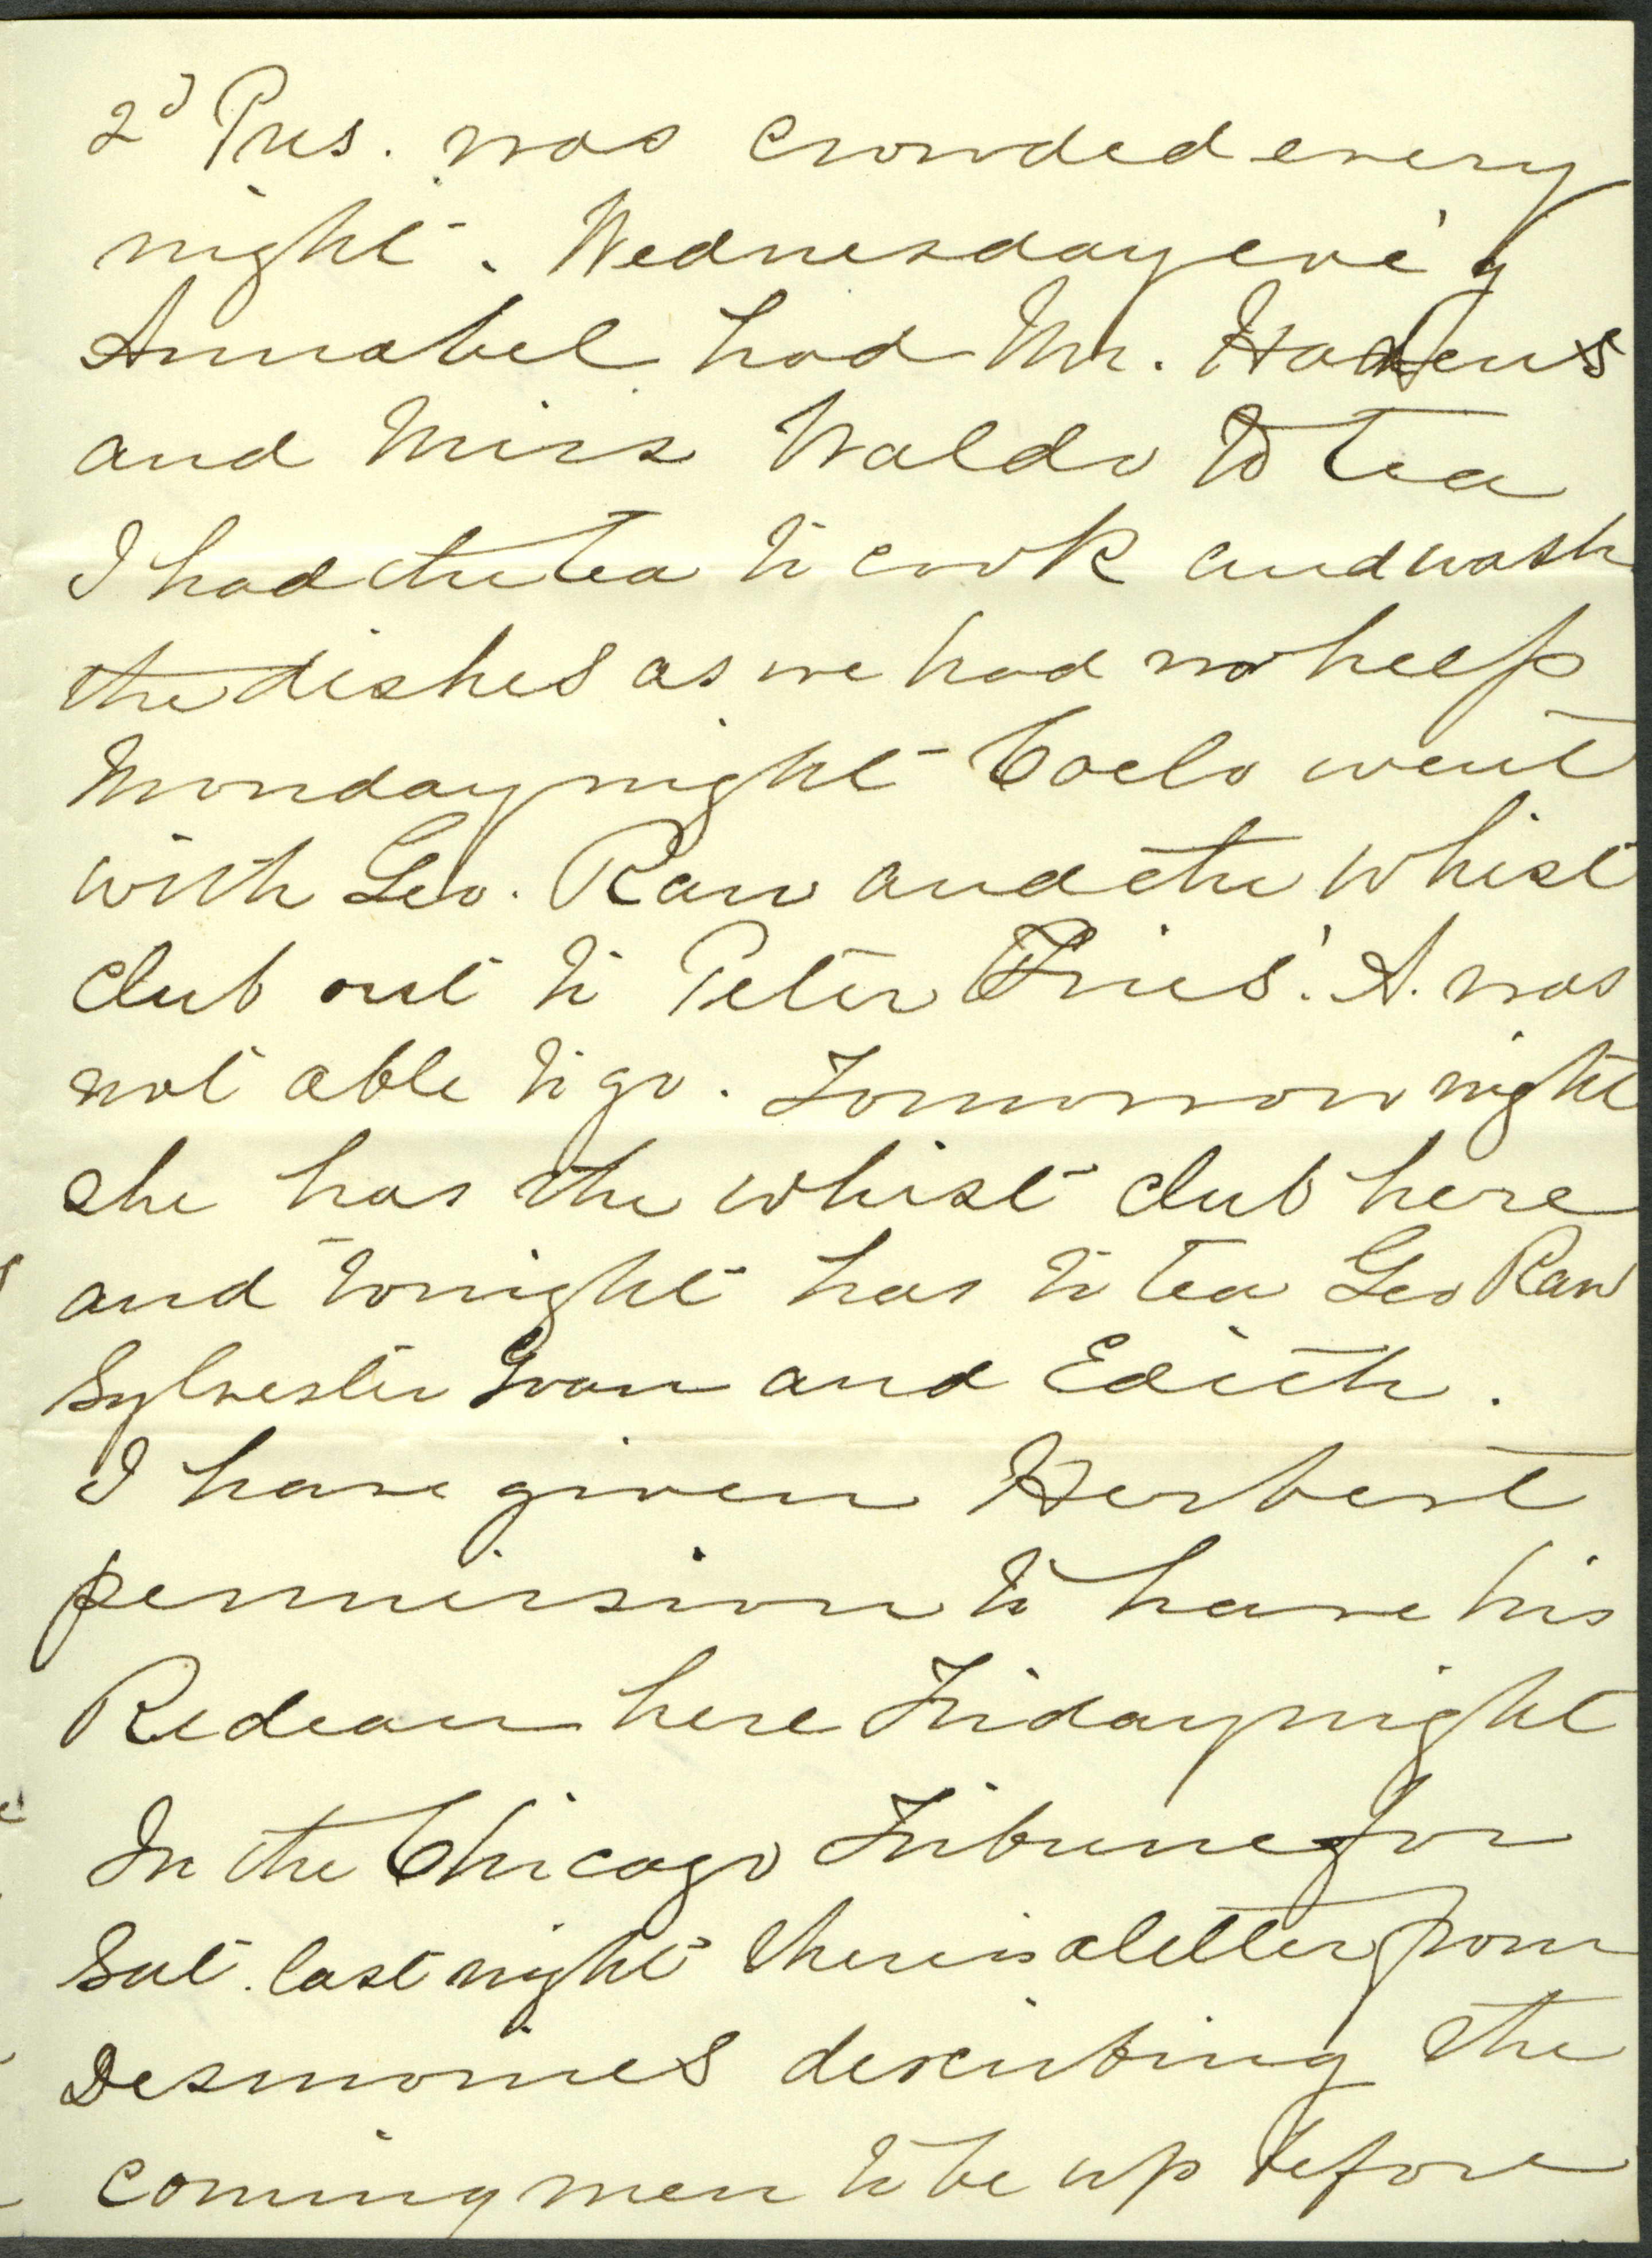 2d Pres. was crowded every
night. Wednesday eve'g
Annabel had Mr.
and Miss Waldo to tea
I had the tea to cook and wash
the dishes as we had no help
Monday night Coelo went
with Geo. Raw and the Whist
club out to Peter Fries'. A. was
not able to go. Tomorrow night
she has the whist club here
and tonight has to tea Geo Raw
Sylvester and Edith.
I have given Herbert
permission to have his
here Friday night
In the Chicago Tribune for
Sat. last night there is a letter from
Desmoines describing the
coming men to be up before